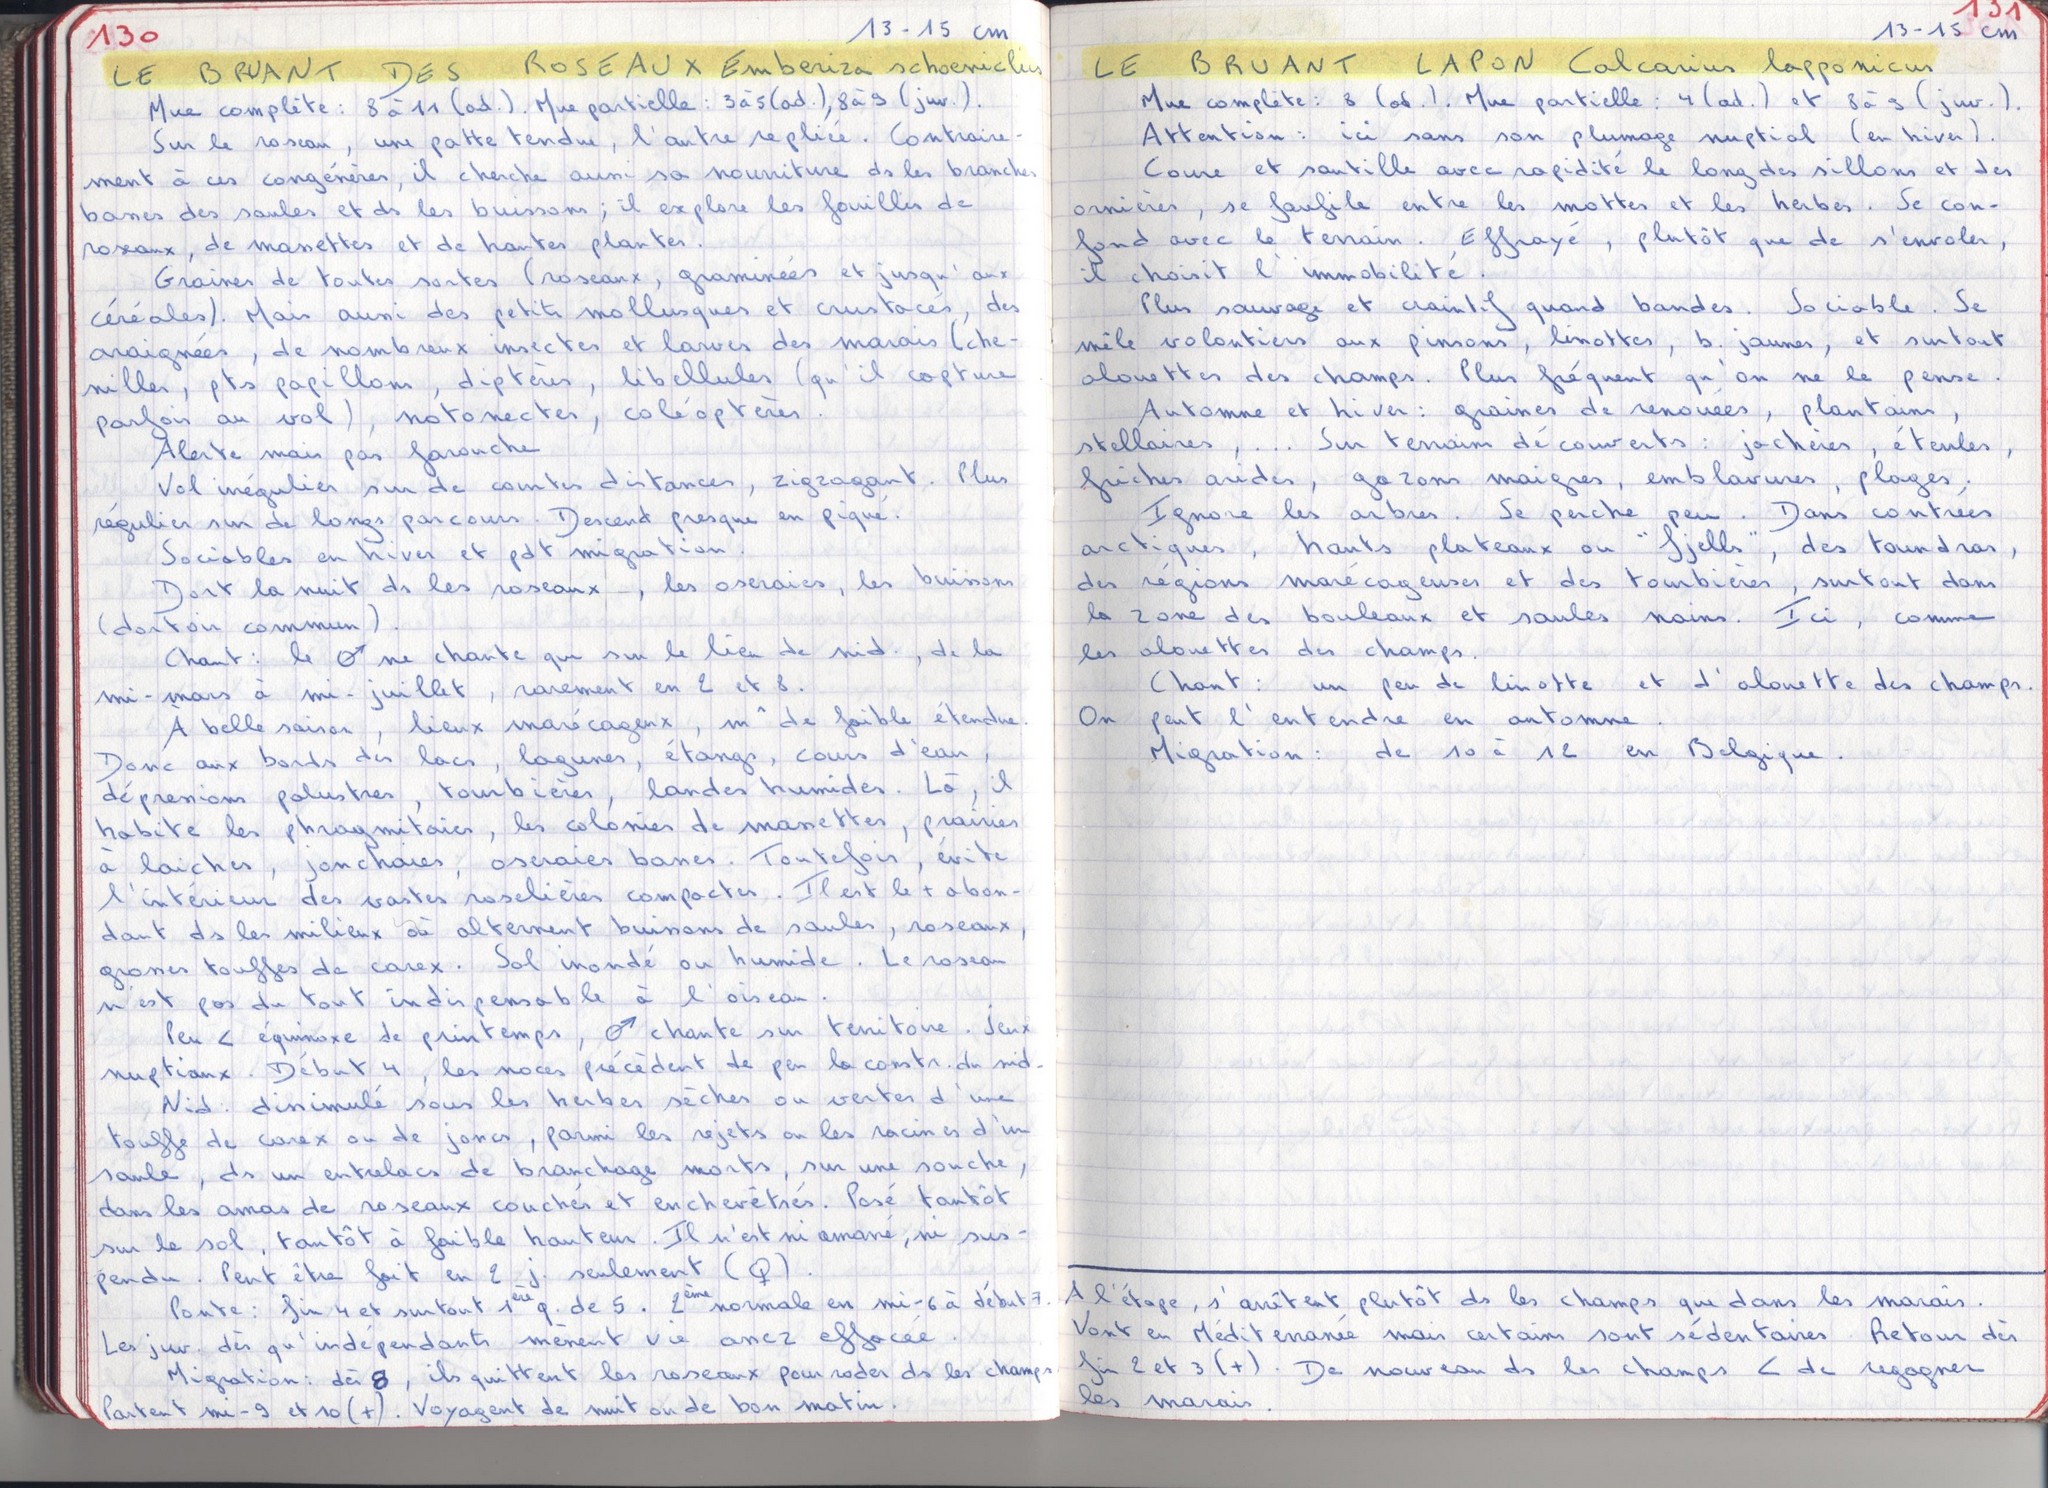 130
13-15 cm
LE BRUANT DES ROSEAUX Emberiza schoeniclus
Mue complète: 8 à 11 (ad.). Mue partielle: 3 à 5 (ad.), 8 à 9 (juv.).
Sur le roseau, une patte tendue, l'autre repliée. Contraire-
ment à ces congénères, il cherche aussi sa nourriture ds les branches
basses des saules et ds les buissons; il explore les fouillis de
roseaux, de massettes et de hautes plantes.
Graines de toutes sortes (roseaux, graminées et jusqu'aux
céréales). Mais aussi des petits mollusques et crustacés, des
araignées, de nombreux insectes et larves des marais (che-
nilles, pts papillons, diptères, libellules (qu'il capture
parfois au vol), notonectes, coléoptères.
Alerte mais pas farouche
Vol irrégulier sur de courtes distances, zigzagant. Plus
régulier sur de longs parcours. Descend presque en piqué.
Sociables en hiver et pdt migration.
Dort la nuit ds les roseaux, les oseraies, les buissons
(dortoir commun).
Chant: le ♂ ne chante que sur le lieu de nid., de la
mi-mars à mi-juillet, rarement en 2 et 8.
À belle saison, lieux marécageux, m^ de faible étendue.
Donc aux bords des lacs, lagunes, étangs, cours d'eau,
dépressions palustres, tourbières, landes humides. Là, il
habite les phragmitaies, les colonies de massettes, prairies
à laiches, jonchaies, oseraies basses. Toutefois, évite
l'intérieur des vastes roselières compactes. Il est le + abon-
dant ds les milieux où alternent buissons de saules, roseaux,
grosses touffes de carex. Sol inondé ou humide. Le roseau
n'est pas du tout indispensable à l'oiseau.
Peu < équinoxe de printemps, ♂ chante sur territoire. Jeux
nuptiaux. Début 4, les noces précèdent de peu la constr. du nid.
Nid: dissimulé sous les herbes sèches ou vertes d'une
touffe de carex ou de joncs, parmi les rejets ou les racines d'un
saule, ds un entrelacs de branchage morts, sur une souche,
dans les amas de roseaux couchés et enchevêtrés. Posé tantôt
sur le sol, tantôt à faible hauteur. Il n'est ni amarré, ni sus-
pendu. Peut être fait en 2 j. seulement (♀).
Ponte: fin 4 et surtout 1ère q. de 5. 2ème normale en mi-6 à début 7.
Les juv. dès qu'indépendants mènent vie assez effacée.
Migration: dès 8, ils quittent les roseaux pour roder ds les champs.
Partent mi-9 et 10 (+). Voyagent de nuit ou de bon matin.
131
13-15 cm
LE BRUANT LAPON Calcarius lapponicus
Mue complète: 8 (ad.). Mue partielle: 4 (ad.) et 8 à 9 (juv.).
Attention: ici sans son plumage nuptial (en hiver).
Coure et sautille avec rapidité le long des sillons et des
ornières, se faufile entre les mottes et les herbes. Se con-
fond avec le terrain. Effrayé, plutôt que de s'envoler,
il choisit l'immobilité.
Plus sauvage et craintif quand bandes. Sociable. Se
mêle volontiers aux pinsons, linottes, b. jaunes, et surtout
alouettes des champs. Plus fréquent qu'on ne le pense.
Automne et hiver: graines de renouées, plantains,
stellaires, ... Sur terrains découverts: jachères, éteules,
friches arides, gazons maigres, emblavures, plages.
Ignore les arbres. Se perche peu. Dans contrées
arctiques, hauts plateaux ou "fjells", des toundras,
des régions marécageuses et des tourbières, surtout dans
la zone des bouleaux et saules nains. Ici, comme
les alouettes des champs.
Chant: un peu de linotte et d'alouette des champs.
On peut l'entendre en automne.
Migration: de 10 à 12 en Belgique.
A l'étape, s'arrêtent plutôt ds les champs que dans les marais.
Vont en Méditerranée mais certains sont sédentaires. Retour dès
fin 2 et 3 (+). De nouveau ds les champs < de regagner
les marais.